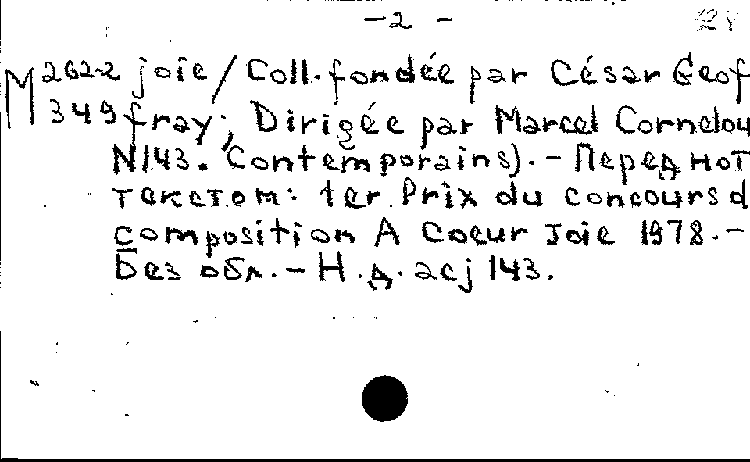 -2 -
М 262-2 joie / Coll. fondée par César Geof
349 fray; Dirigée par Marcel Cornelou
N143. Contemporains). - Перед нот
текстом: 1er Prix du concours d
composition A Coeur Joie 1978. -
Без обл. - Н. д. acj 143.